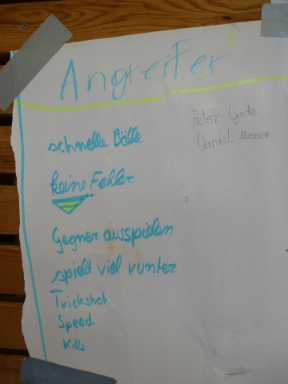 Angreifer
schnelle Bälle
Peter Gade
Daniel
keine Fehler
Gegner ausspielen
spielt viel runter
Trickshot
Speed
Kills